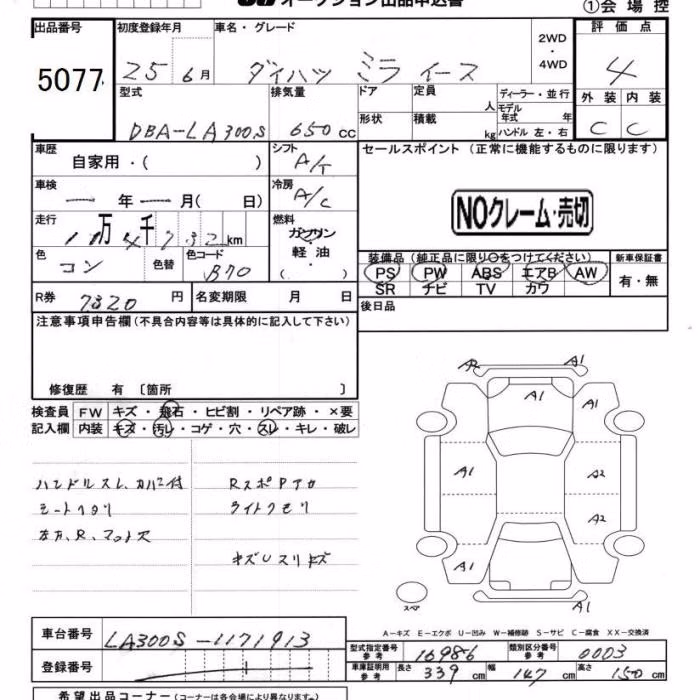 オークション出品申込書 ①会場控
出品番号 初度登録年月 車名・グレード 2WD・4WD 評価点
5077 25 6月 ダイハツ ミラ イース 4
型式 排気量 ドア 定員 人 ディーラー・並行 外装 内装
DBA-LA300S 650cc 形状 積載 kg モデル年式 年 ハンドル 左・右 C C
車歴 自家用・( ) シフト A/T セールスポイント(正常に機能するものに限ります)
車検 ー年ー月( 日) 冷房 A/C
NOクレーム・売切
走行 11万4千732km 燃料 ガソリン 軽油 ( )
色 コン 色替 色コード B70
装備品(純正品に限り○をつけてください) 新車保証書
PS PW ABS エアB AW 有・無
SR ナビ TV カワ
R券 7320円 名変期限 月 日 後日品
注意事項申告欄(不具合内容等は具体的に記入して下さい)
修復歴 有 〔箇所 〕
検査員 FW キズ・飛石・ヒビ割・リペア跡・×要
記入欄 内装 キズ・汚レ・コゲ・穴・スレ・キレ・破レ
ハンドルスレ、カバー付 RスポPアカ
シートヘタリ ライトクモリ
キズUスリキズ
A2 A1
A1 A1
A1 A2
A2
A1 A1
スペア A1
A-キズ E-エクボ U-凹み W-補修跡 S-サビ C-腐食 XX-交換済
車台番号 LA300S-1171913
型式指定番号 参考 16986 類別区分番号 参考 0003
登録番号 車庫証明用 参考 長さ 339cm 幅 147cm 高さ 150cm
希望出品コーナー(コーナーは各会場により異なります。)